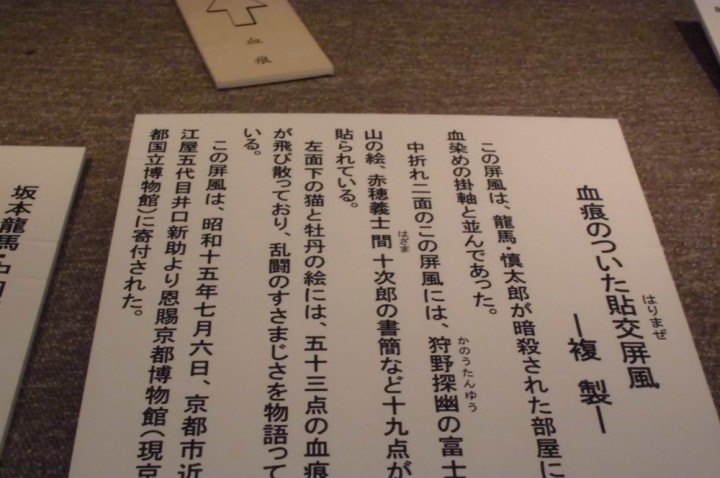 血痕
血痕のついた貼交屏風
はりまぜ
―複製―
この屏風は、龍馬・慎太郎が暗殺された部屋に
血染めの掛軸と並んであった。
中折れ二面のこの屏風には、狩野探幽の富士
かのうたんゆう
山の絵、赤穂義士間十次郎の書簡など十九点が
はざま
貼られている。
左面下の猫と牡丹の絵には、五十三点の血痕
が飛び散っており、乱闘のすさまじさを物語って
いる。
この屏風は、昭和十五年七月六日、京都市近
江屋五代目井口新助より恩賜京都博物館(現京
都国立博物館)に寄付された。
坂本龍馬・中